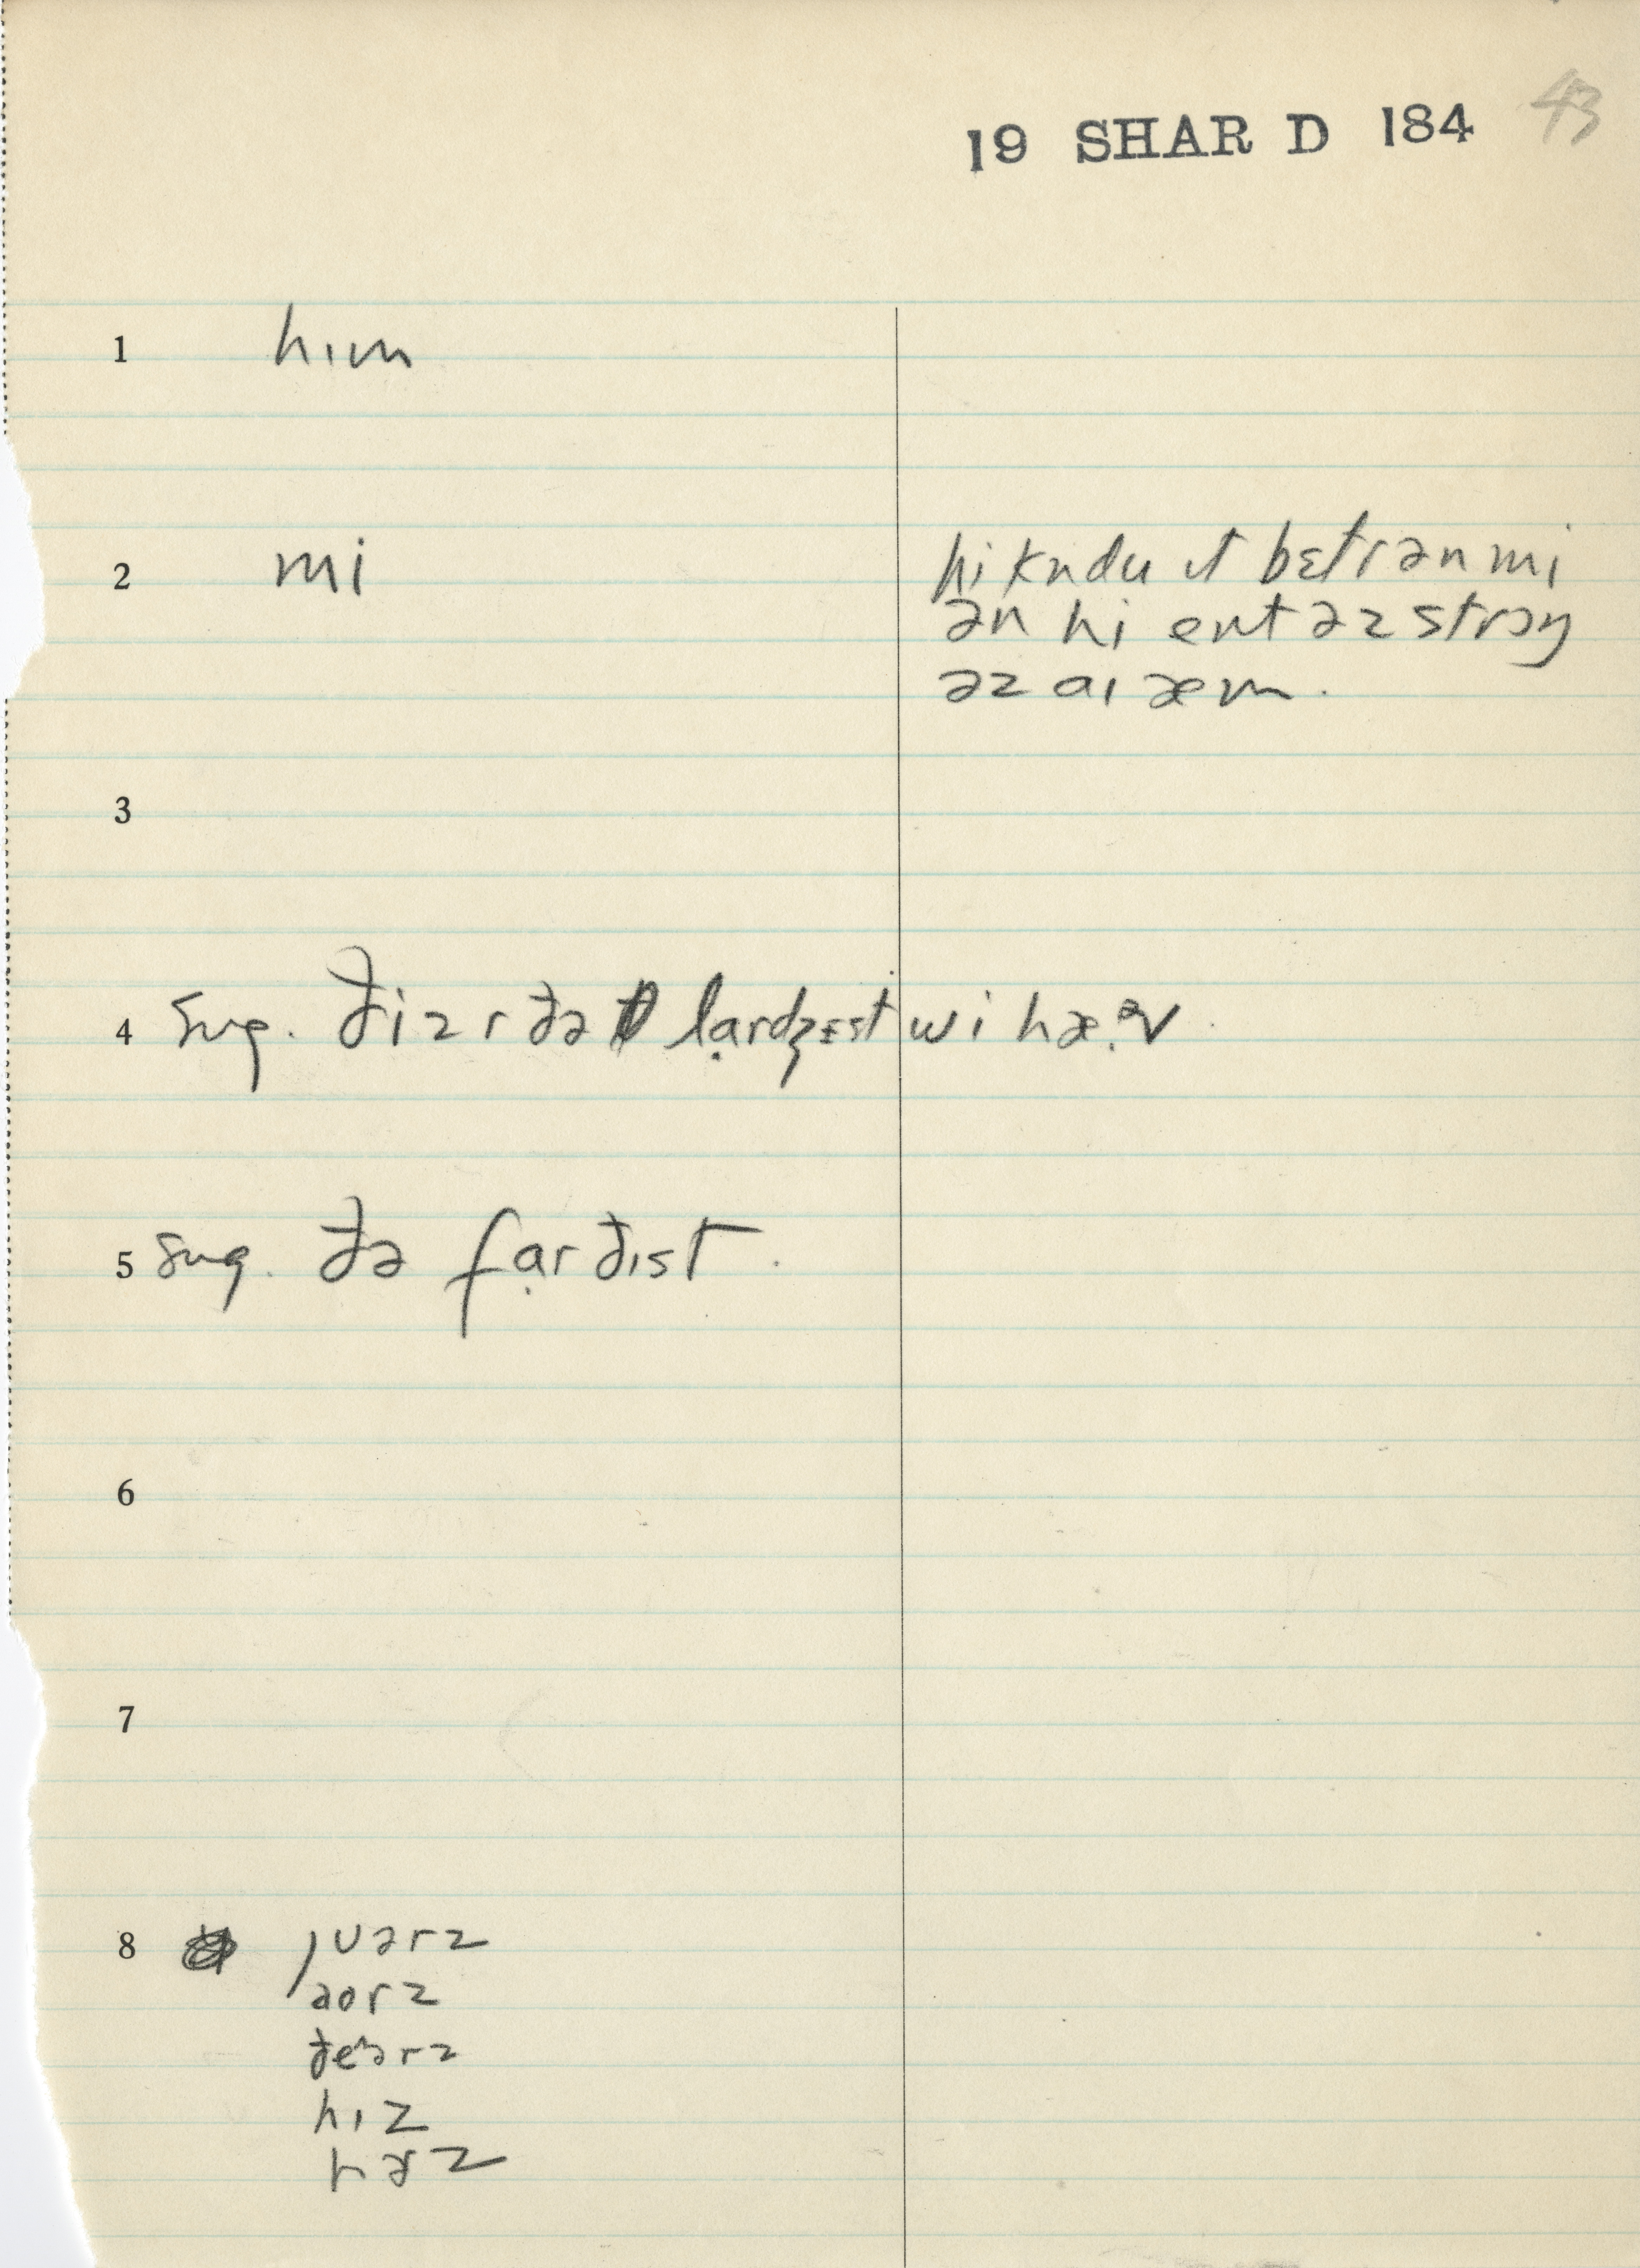 19 SHAR D 184 43
1 hɪm
2 mi
hi kʌdu ɪt bɛtr ən mi
ən hi ent əz strɔŋ
əz aɪ æm.
3
4 sug. ði ə r ðə lạrdʒɛst wi hæ.ᵊv.
5 sug. ðə fạrðɪst.
6
7
8 juərz
aorz
ðeᵊrz
hɪz
hɚz